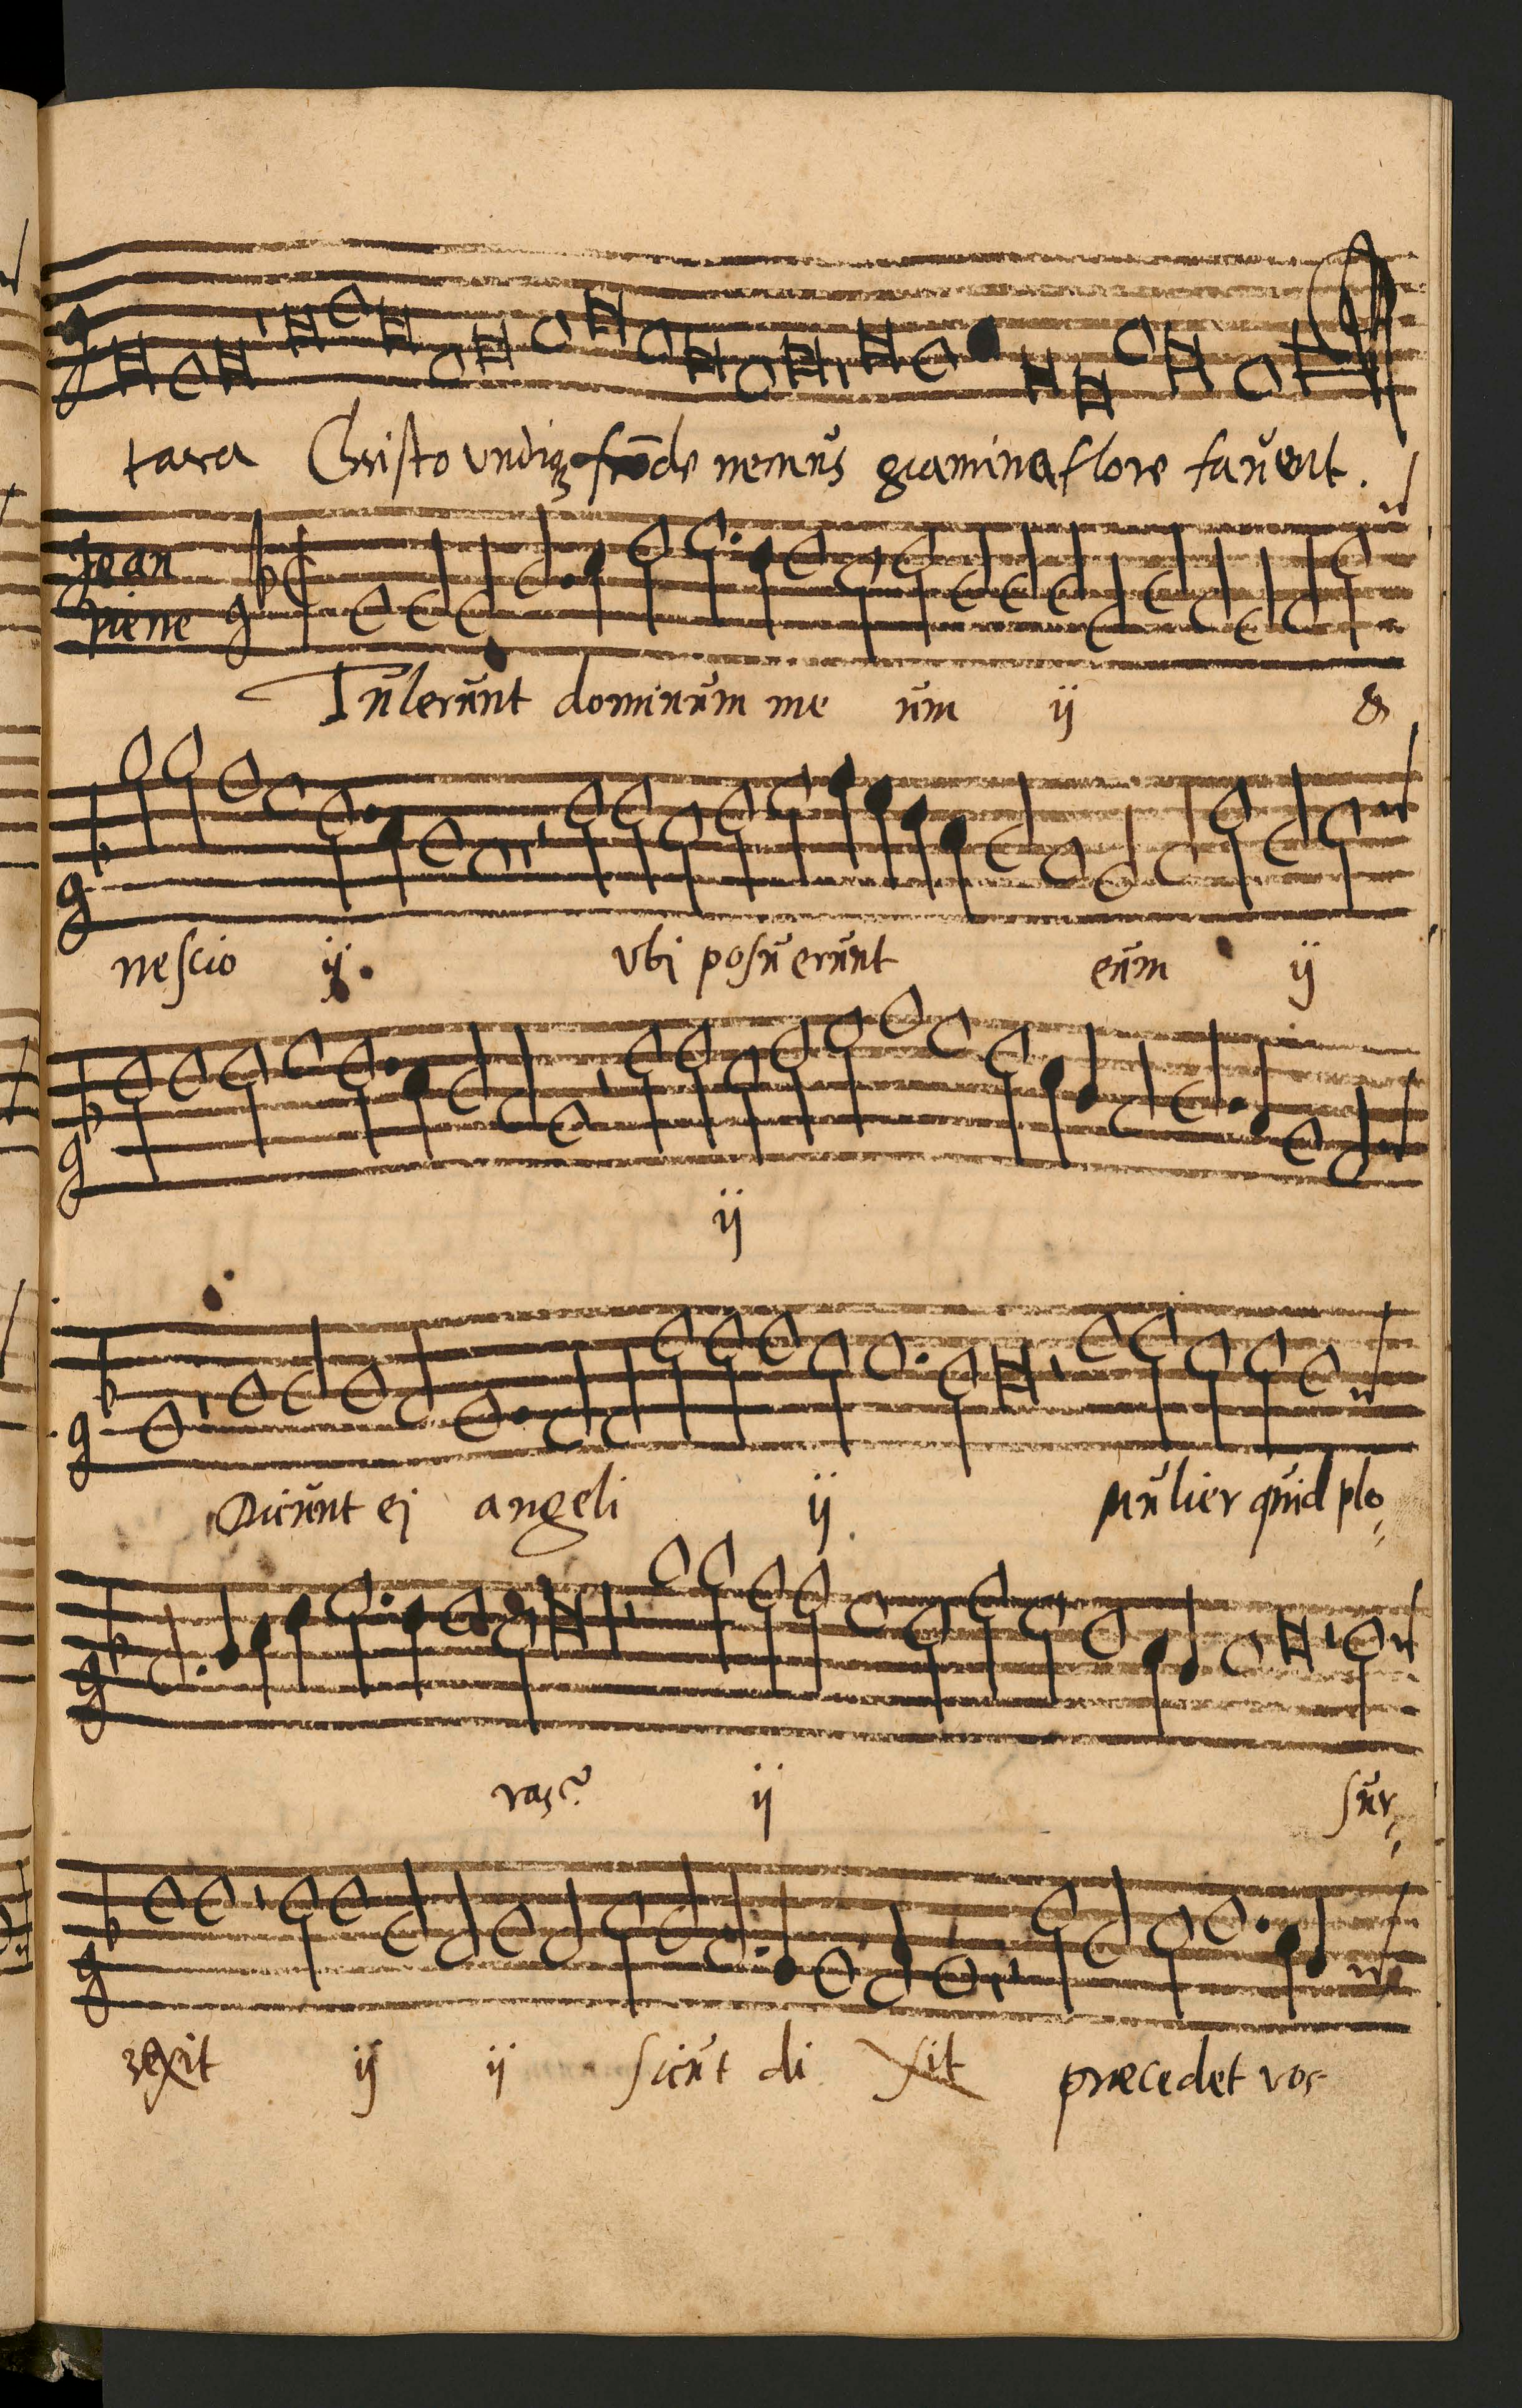 tara Christo undiqꝫ frōde nemus gramina flore favent.
Jean
Tulerunt dominum me um ij &
nescio ij. vbi posuerunt eum ij
ij
Dicunt ei angeli ij. Mulier quid plo
ras? ij sur
rexit ij ij sicut di xit præcedet vos